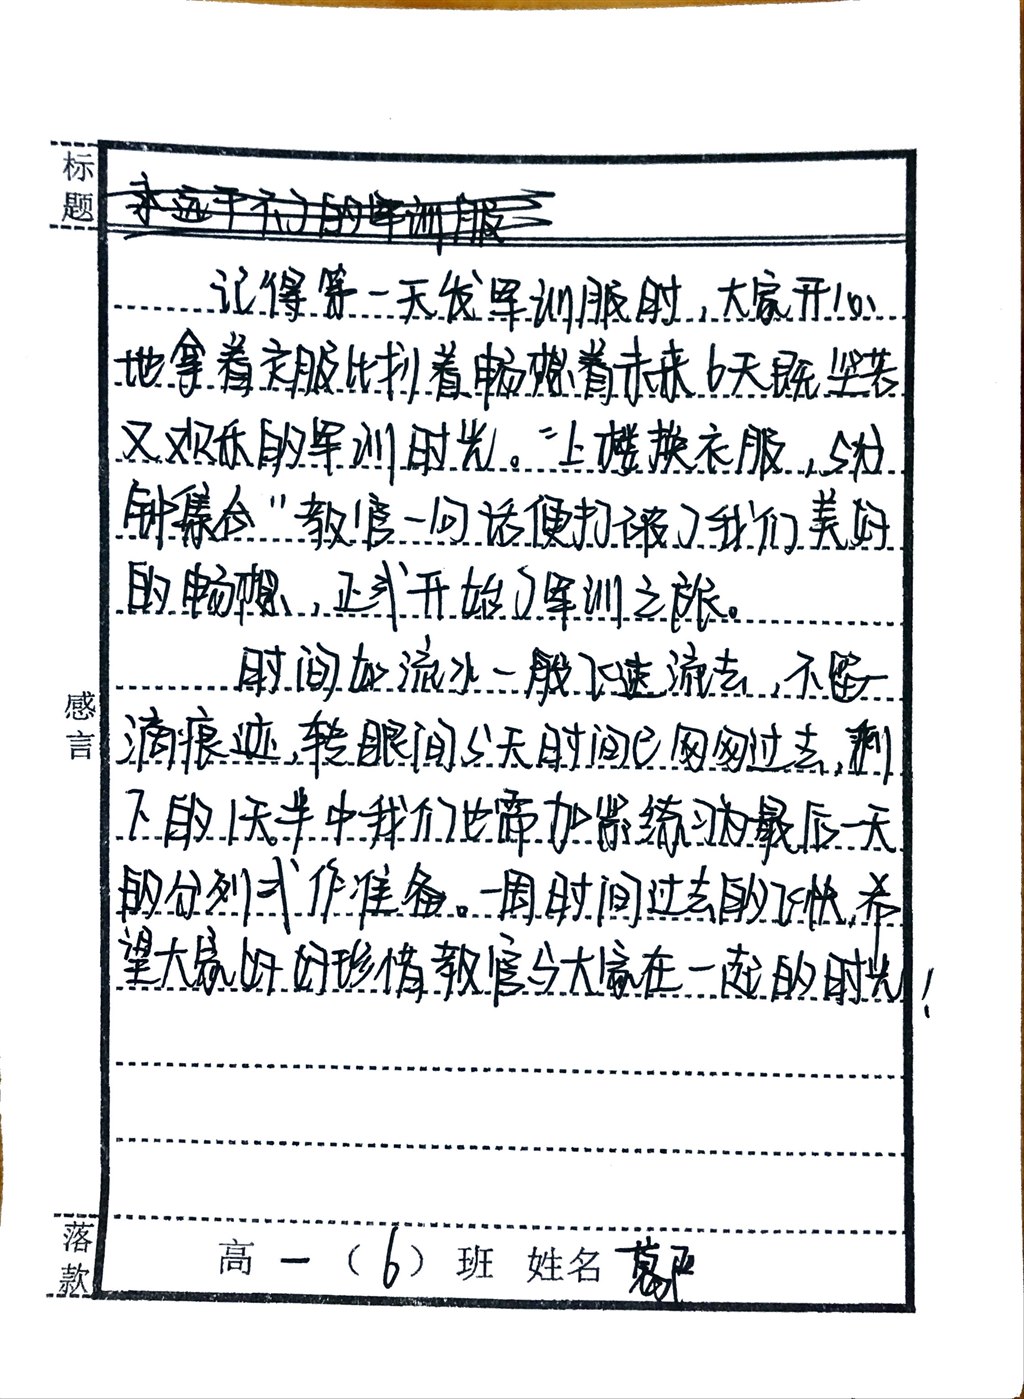 标题
永远干不了的军训服
记得第一天发军训服时,大家开心
地拿着衣服比划着畅想着未来6天既坚苦
又欢乐的军训时光。“上楼换衣服,5分
钟集合”教官一句话便打破了我们美好
的畅想,正式开始了军训之旅。
时间如流水一般飞速流去,不留一
滴痕迹,转眼间5天时间已匆匆过去,剩
下的1天半中我们也需加紧练习为最后一天
的分列式作准备。一周时间过去的飞快,希
感言
望大家好好珍惜教官与大家在一起的时光!
落款
高一(6)班 姓名